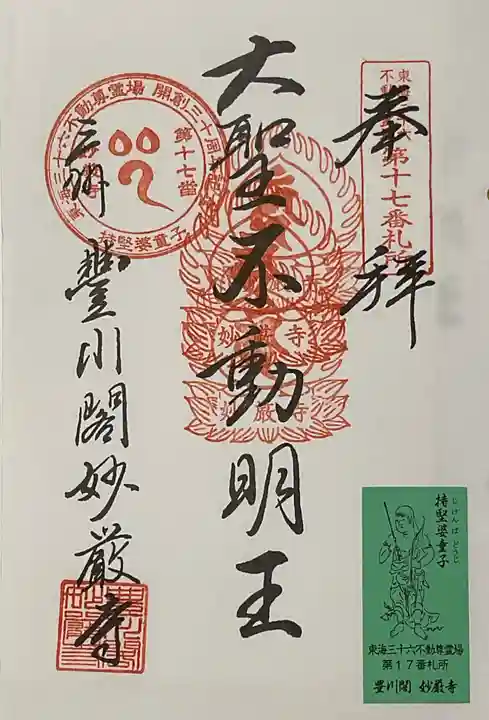 奉拝
東海三十六
不動尊霊場
第十七番札所
大聖不動明王
妙厳寺
妙厳寺
東海三十六不動尊霊場 開創三十周年記念
第十七番
持堅婆童子
三州 豊川閣妙厳寺
持堅婆童子
じけんば どうじ
東海三十六不動尊霊場
第17番札所
豊川閣 妙厳寺